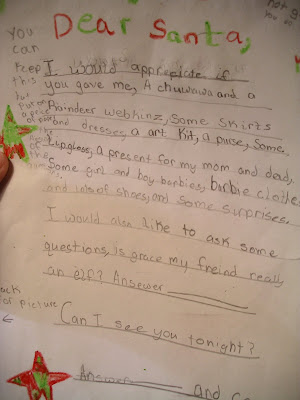 Dear Santa,
I would apprieciate if
you gave me, A chuwawa and a
Raindeer webkinz, Some skirts
and dresses, a art kit, a purse, some
Lipgloss, a present for my mom and dad,
Some girl and boy barbies, barbie clothe
and lots of shoes, and some surprises.
I would also like to ask some
questions, is grace my freind really
an elf? Answer
Can I see you tonight?
Answer and
You
can
keep
this
but
put on
a price
of
the
for picture
←
not g